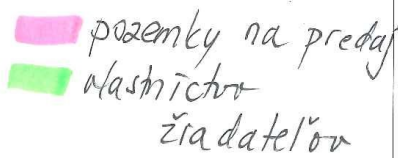 pozemky na predaj
vlastníctvo
žiadateľov